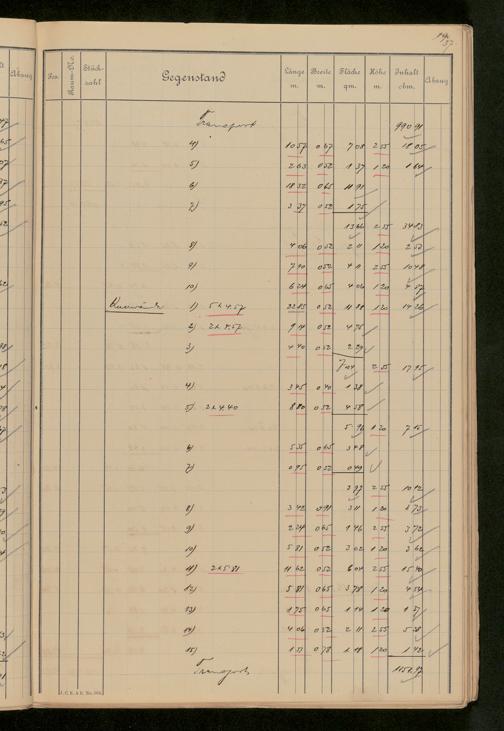 57.
Pos. Raum-No. Stück-zahl Gegenstand Länge m. Breite m. Fläche qm. Höhe m. Inhalt cbm. Abzug
Transport 990 91
4) 10 57 0 67 7 08 2 55 18 05
5) 2 63 0 52 1 37 1 20 1 64
6) 18 32 0 65 11 91
7) 3 37 0 52 1 75
13 66 2 55 34 83
8) 4 06 0 52 2 11 1 20 2 53
9) 7 90 0 52 4 11 2 55 10 48
10) 6 24 0 65 4 06 1 20 4 87
1) 5 x 4.57 22 85 0 52 11 88 1 20 14 26
2) 2 x 4.57 9 14 0 52 4 75
3) 4 40 0 52 2 29
7 04 2 55 17 95
4) 3 45 0 40 1 38
5) 2 x 4.40 8 80 0 52 4 58
5 96 1 20 7 15
6) 5 35 0 65 3 48
7) 0 95 0 52 0 49
3 97 2 55 10 12
8) 3 42 0 91 3 11 1 20 3 73
9) 2 24 0 65 1 46 2 55 3 72
10) 5 81 0 52 3 02 1 20 3 62
11) 2 x 5.81 11 62 0 52 6 04 2 55 15 40
12) 5 81 0 65 3 78 1 20 4 54
13) 1 75 0 65 1 14 1 20 1 37
14) 4 06 0 52 2 11 2 55 5 38
15) 1 51 0 78 1 18 1 20 1 42
Transport